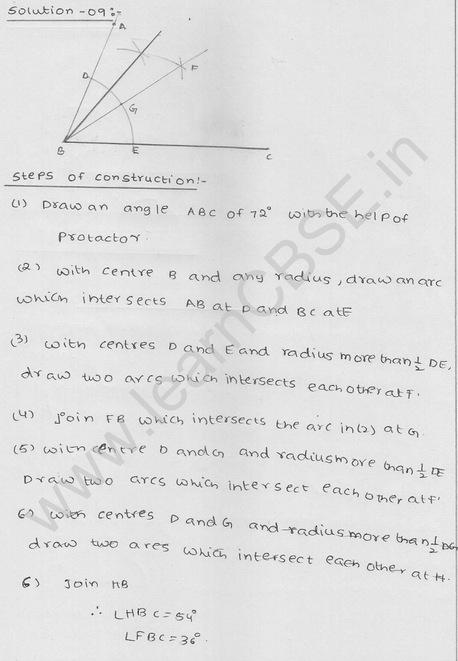 Solution-09:-
A
D
F
G
B
E
C
Steps of construction:-
(1) Draw an angle ABC of 72° with the help of
Protactor.
(2) with centre B and any radius, draw an arc
which intersects AB at D and BC at E
(3) with centres D and E and radius more than ½ DE,
draw two arcs which intersects each other at F.
(4) Join FB which intersects the arc in(2) at G.
(5) with centre D and G and radius more than ½ DE
Draw two arcs which intersect each other at F'
6) with centres D and G and radius more than ½ DG
draw two arcs which intersect each other at H.
6) Join HB
∴ LHBC=54°
LFBC=36°.
www.learnCBSE.in